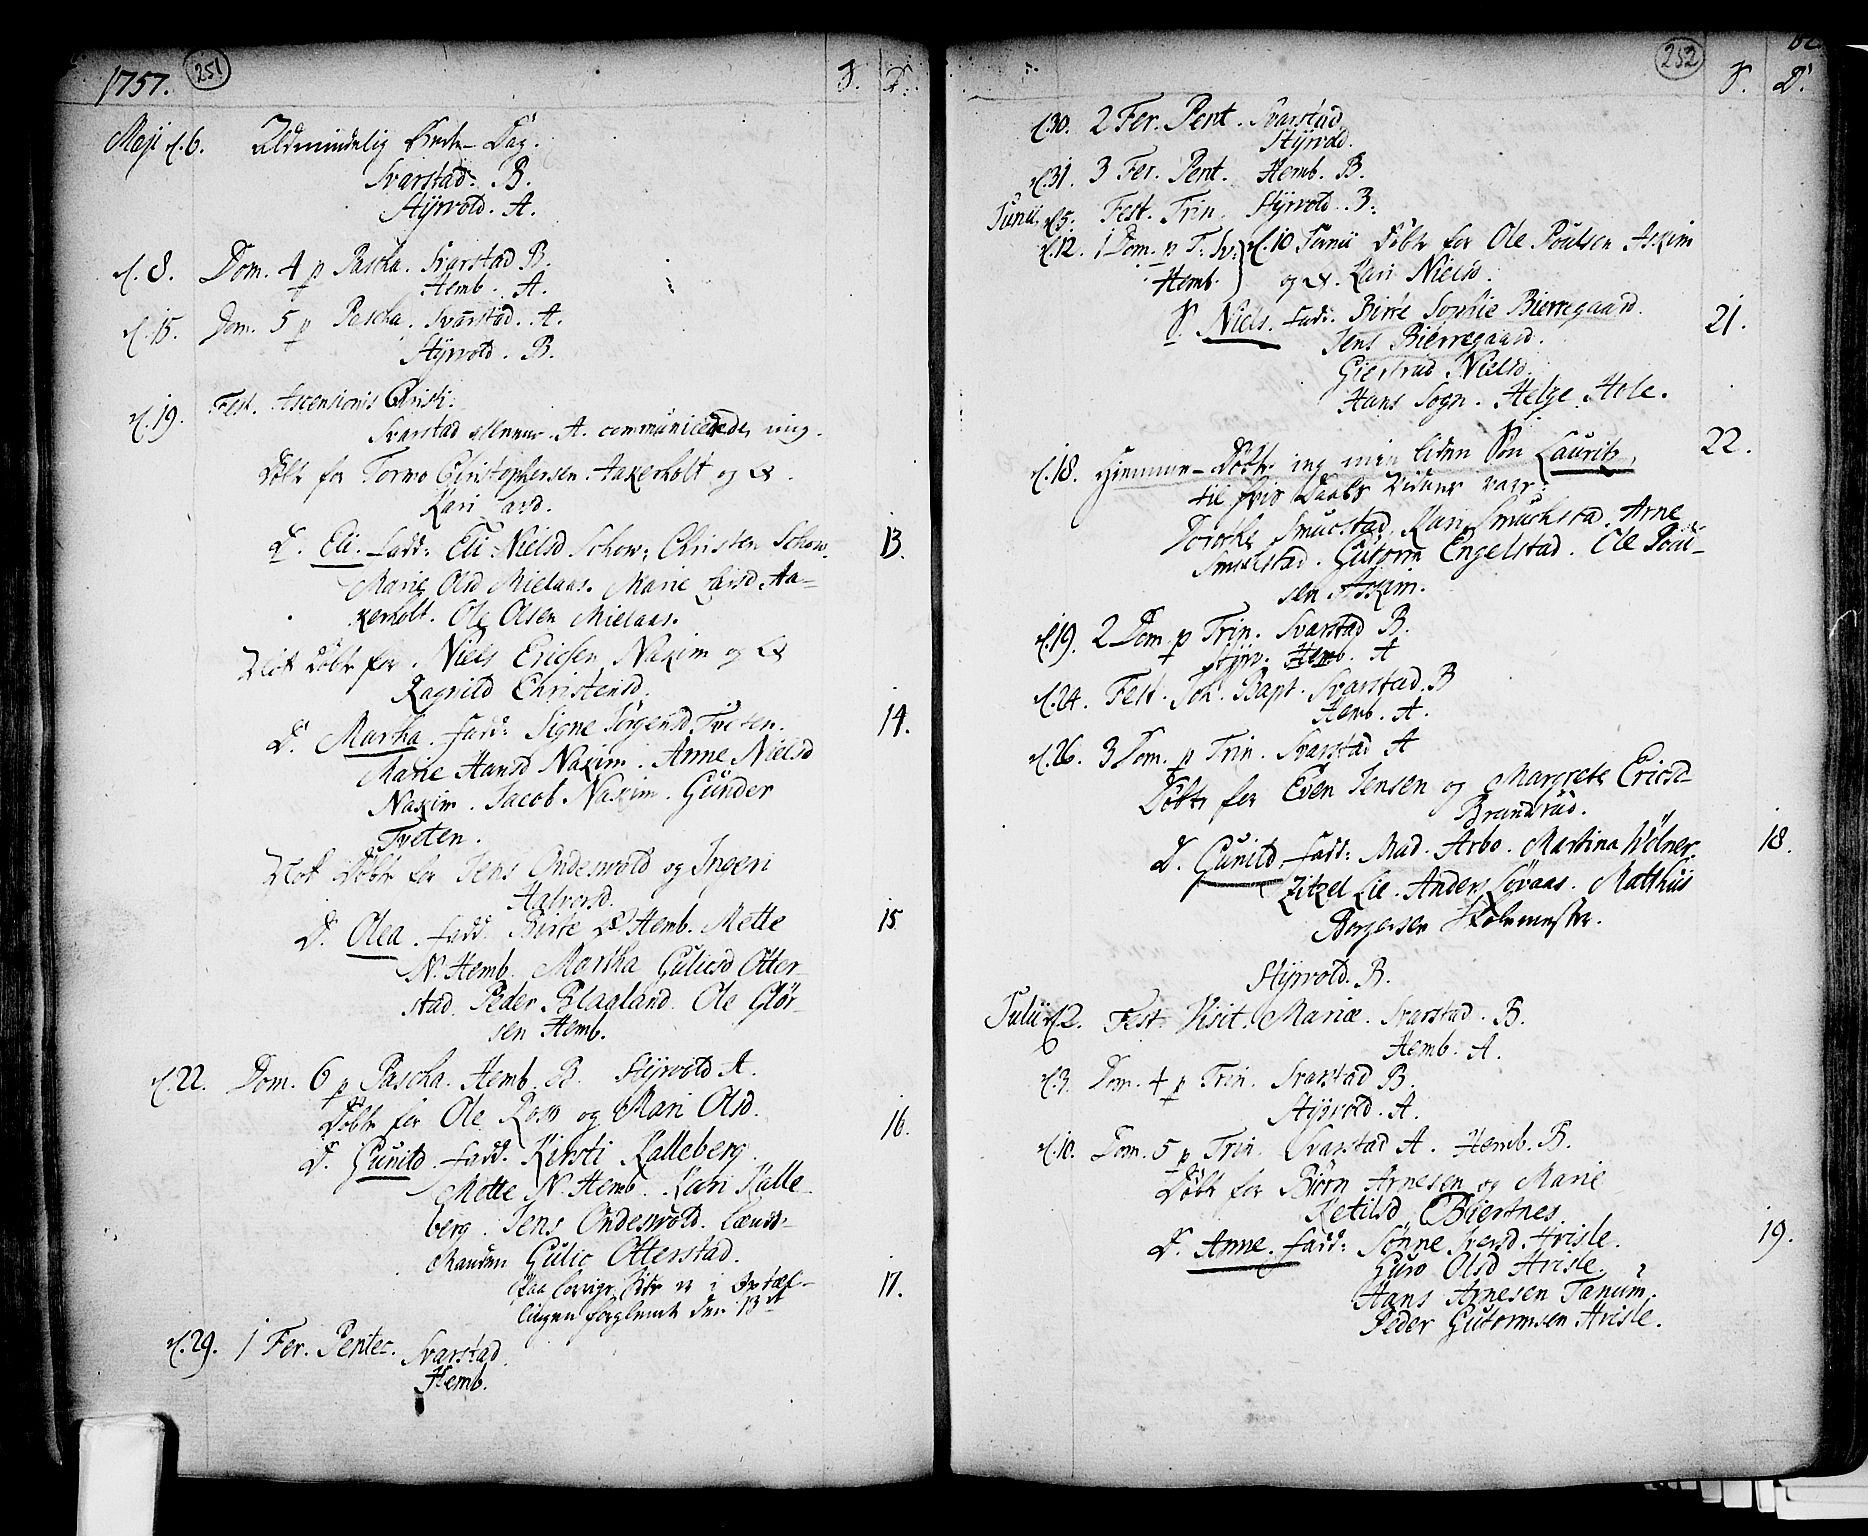 1757. 251 S. D.
Maji d. 6. Allmindelig Bede-Dag.
Svarstad. B.
Styrvold. A.
d. 8. Dom. 4 p Pascha. Svarstad B.
Hemb. A.
d. 15. Dom. 5 p Pascha. Svarstad. A.
Styrvold. B.
d. 19. Fest. Ascensionis Christi.
Svarstad allene. A. communicerede mig.
Døbt for Tormo Christophersen Aakerholt og H.
Kari
D. Eli. Fadd: Eli Nielsd Schow: Christen Schow. 13.
Marie Olsd Mielaas. Marie Larsd Aa-
kerholt. Ole Olsen Mielaas.
Nok Døbt for Niels Ericsen Naxim og H
Ragnild Christensd.
D. Martha. Fadd: Signe Jørgensd Tveten. 14.
Marie Hansd Naxim. Anne Nielsd
Naxim. Jacob Naxim. Gunder
Tveten.
Nok Døbt for Jens Ondesvold og Ingeri
Halvorsd.
D. Olea. Fadd. Birte Hemb. Mette 15
N. Hemb. Martha Gulicsd Otter-
stad. Peder Klagland. Ole Glør-
sen Hemb.
d. 22. Dom. 6 p Pascha. Hemb. B. Styrvold A.
Døbt for Ole Ross og Mari Olsd. 16.
D. Gunild. Fadd. Kirsti Kalleberg.
Mette N. Hemb. Kari Kalle-
berg. Jens Ondesvold. Lænds-
Manden Gulic Otterstad.
Paa forrige Side er i Optæl- 17.
lingen forglemt den 13de
d. 29. 1 Fer. Pentec. Svarstad.
Hemb.
252 S. D.
d. 30. 2 Fer. Pent. Svarstad
Styrvold.
d. 31. 3 Fer. Pent. Hemb. B.
Junii. d. 5. Fest. Trin. Styrvold. B.
d. 12. 1 Dom. p T. Sv: d. 10 Junii Døbt for Ole Poulsen Askim
Hemb. og H. Kari Nielsd.
S. Niels. Fadd: Birte Sophie Bierregaard. 21.
Jens Bierregaard.
Giertrud Nielsd.
Hans Sogn. Helge Hole.
d. 18. Hjemme-Døbte jeg min liden Søn Laurits, 22.
til hvis Daab Vidner vare:
Torost Smucstad. Kari Smuchstad. Arne
Smuchstad. Gutorm Engelstad. Ole Poul-
sen Askim.
d. 19. 2 Dom. p Trin. Svarstad B.
Styrv. Hemb. A
d. 24. Fest. Joh. Bapt. Svarstad. B
Hemb. A.
d. 26. 3 Dom. p Trin. Svarstad A
Døbt for Even Jensen og Margrete Ericsd
Brandrud.
D. Gunild. Fadd: Mad. Arbo. Martina Wølner. 18.
Zitzel Lie. Anders Løvaas. Matthiis
Borgersen Skolemester.
Styrvold. B.
Julii d. 2. Fest. Visit. Mariæ. Svarstad. B.
Hemb. A.
d. 3. Dom. 4 p Trin. Svarstad B.
Styrvold. A.
d. 10. Dom. 5 p Trin. Svarstad A. Hemb. B.
Døbt for Biørn Arnesen og Marie
Ketilsd Biertnes
D. Anne. Fadd: Sønne Iversd. Hvisle. 19.
Guro Olsd Hvisle.
Hans Arnesen Tanum.
Peder Gutormsen Hvisle.